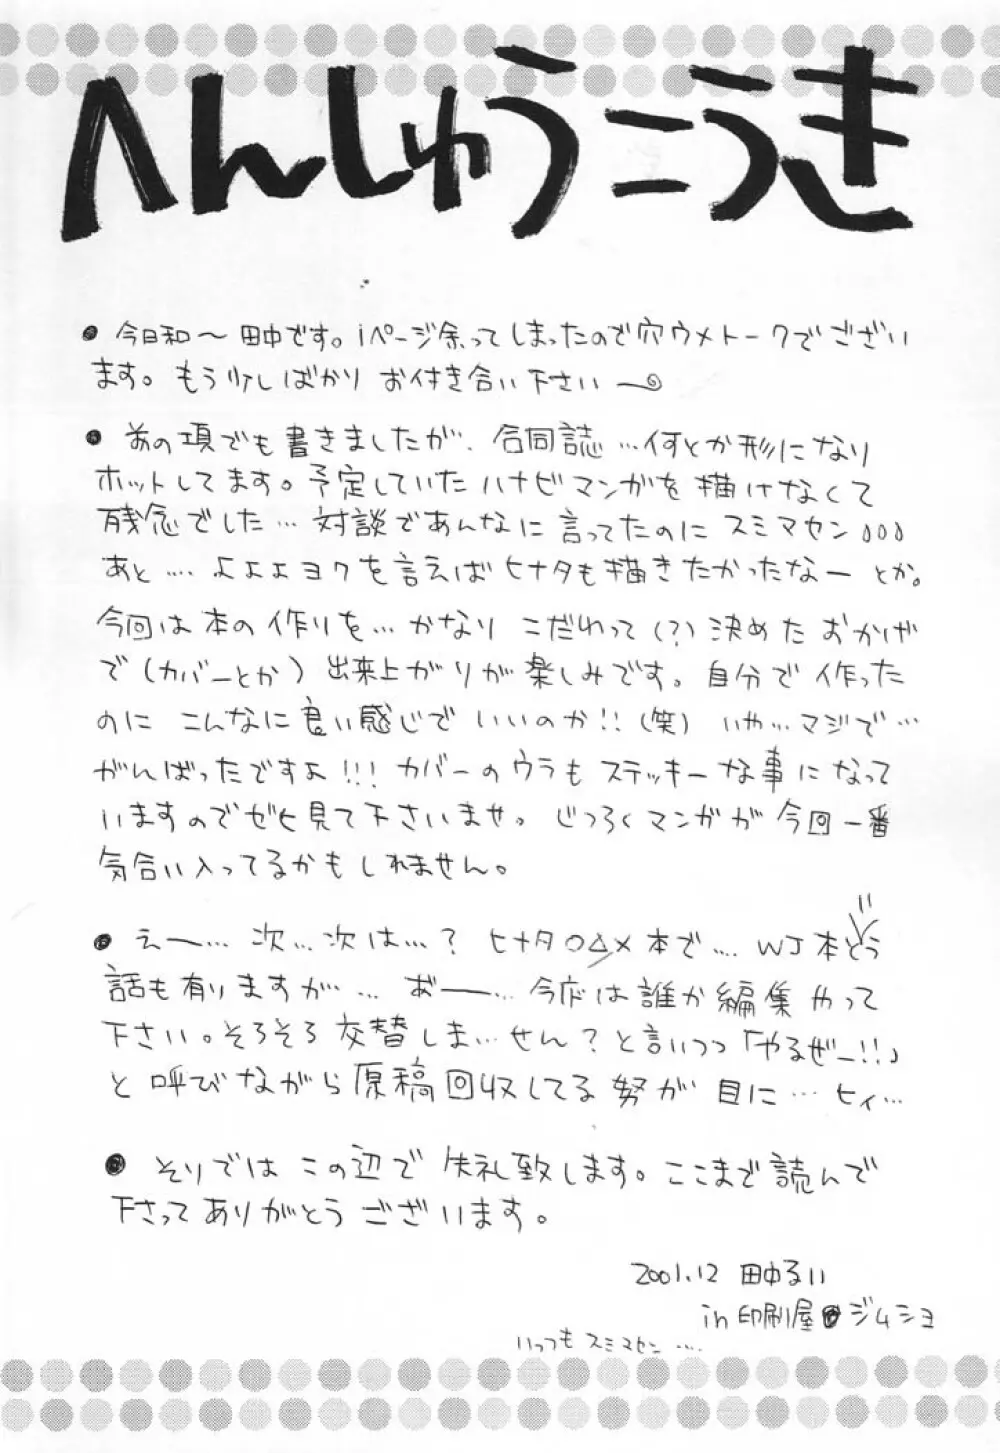 へんしゅうこうき
● 今日和〜 田中です。1ページ余ってしまったので穴ウメトークでござい
ます。もう少しばかり お付き合い下さい〜
● あの項でも書きましたが、合同誌…何とか形になり
ホットしてます。予定していたハナビマンガを描けなくて
残念でした… 対談であんなに言ってたのに スミマセン
あと…. よよよヨクを言えばヒナタも描きたかったなー とか。
今回は本の作りを… かなり こだわって(?)決めたおかげ
で(カバーとか)出来上がりが楽しみです。自分で作った
のに こんなに良い感じで いいのか!!(笑) いや…マジで…
がんばったですよ!!! カバーのウラも ステッキーな事になって
いますのでゼヒ見て下さいませ。じつろくマンガが今回一番
気合い入ってるかもしれません。
● えー…. 次…次は…? ヒナタ○△×本で…. WJ本とう
話も有りますが…. おー…. 今度は誰か編集やって
下さい。そろそろ交替しま…せん?と言いつつ「やるぜー!!」
と呼びながら原稿回収してる努が目に… ヒィ…
● そりでは この辺で 失礼致します。ここまで読んで
下さってありがとうございます。
2001.12 田中るい
in 印刷屋 ジムショ
いつもスミマセン….